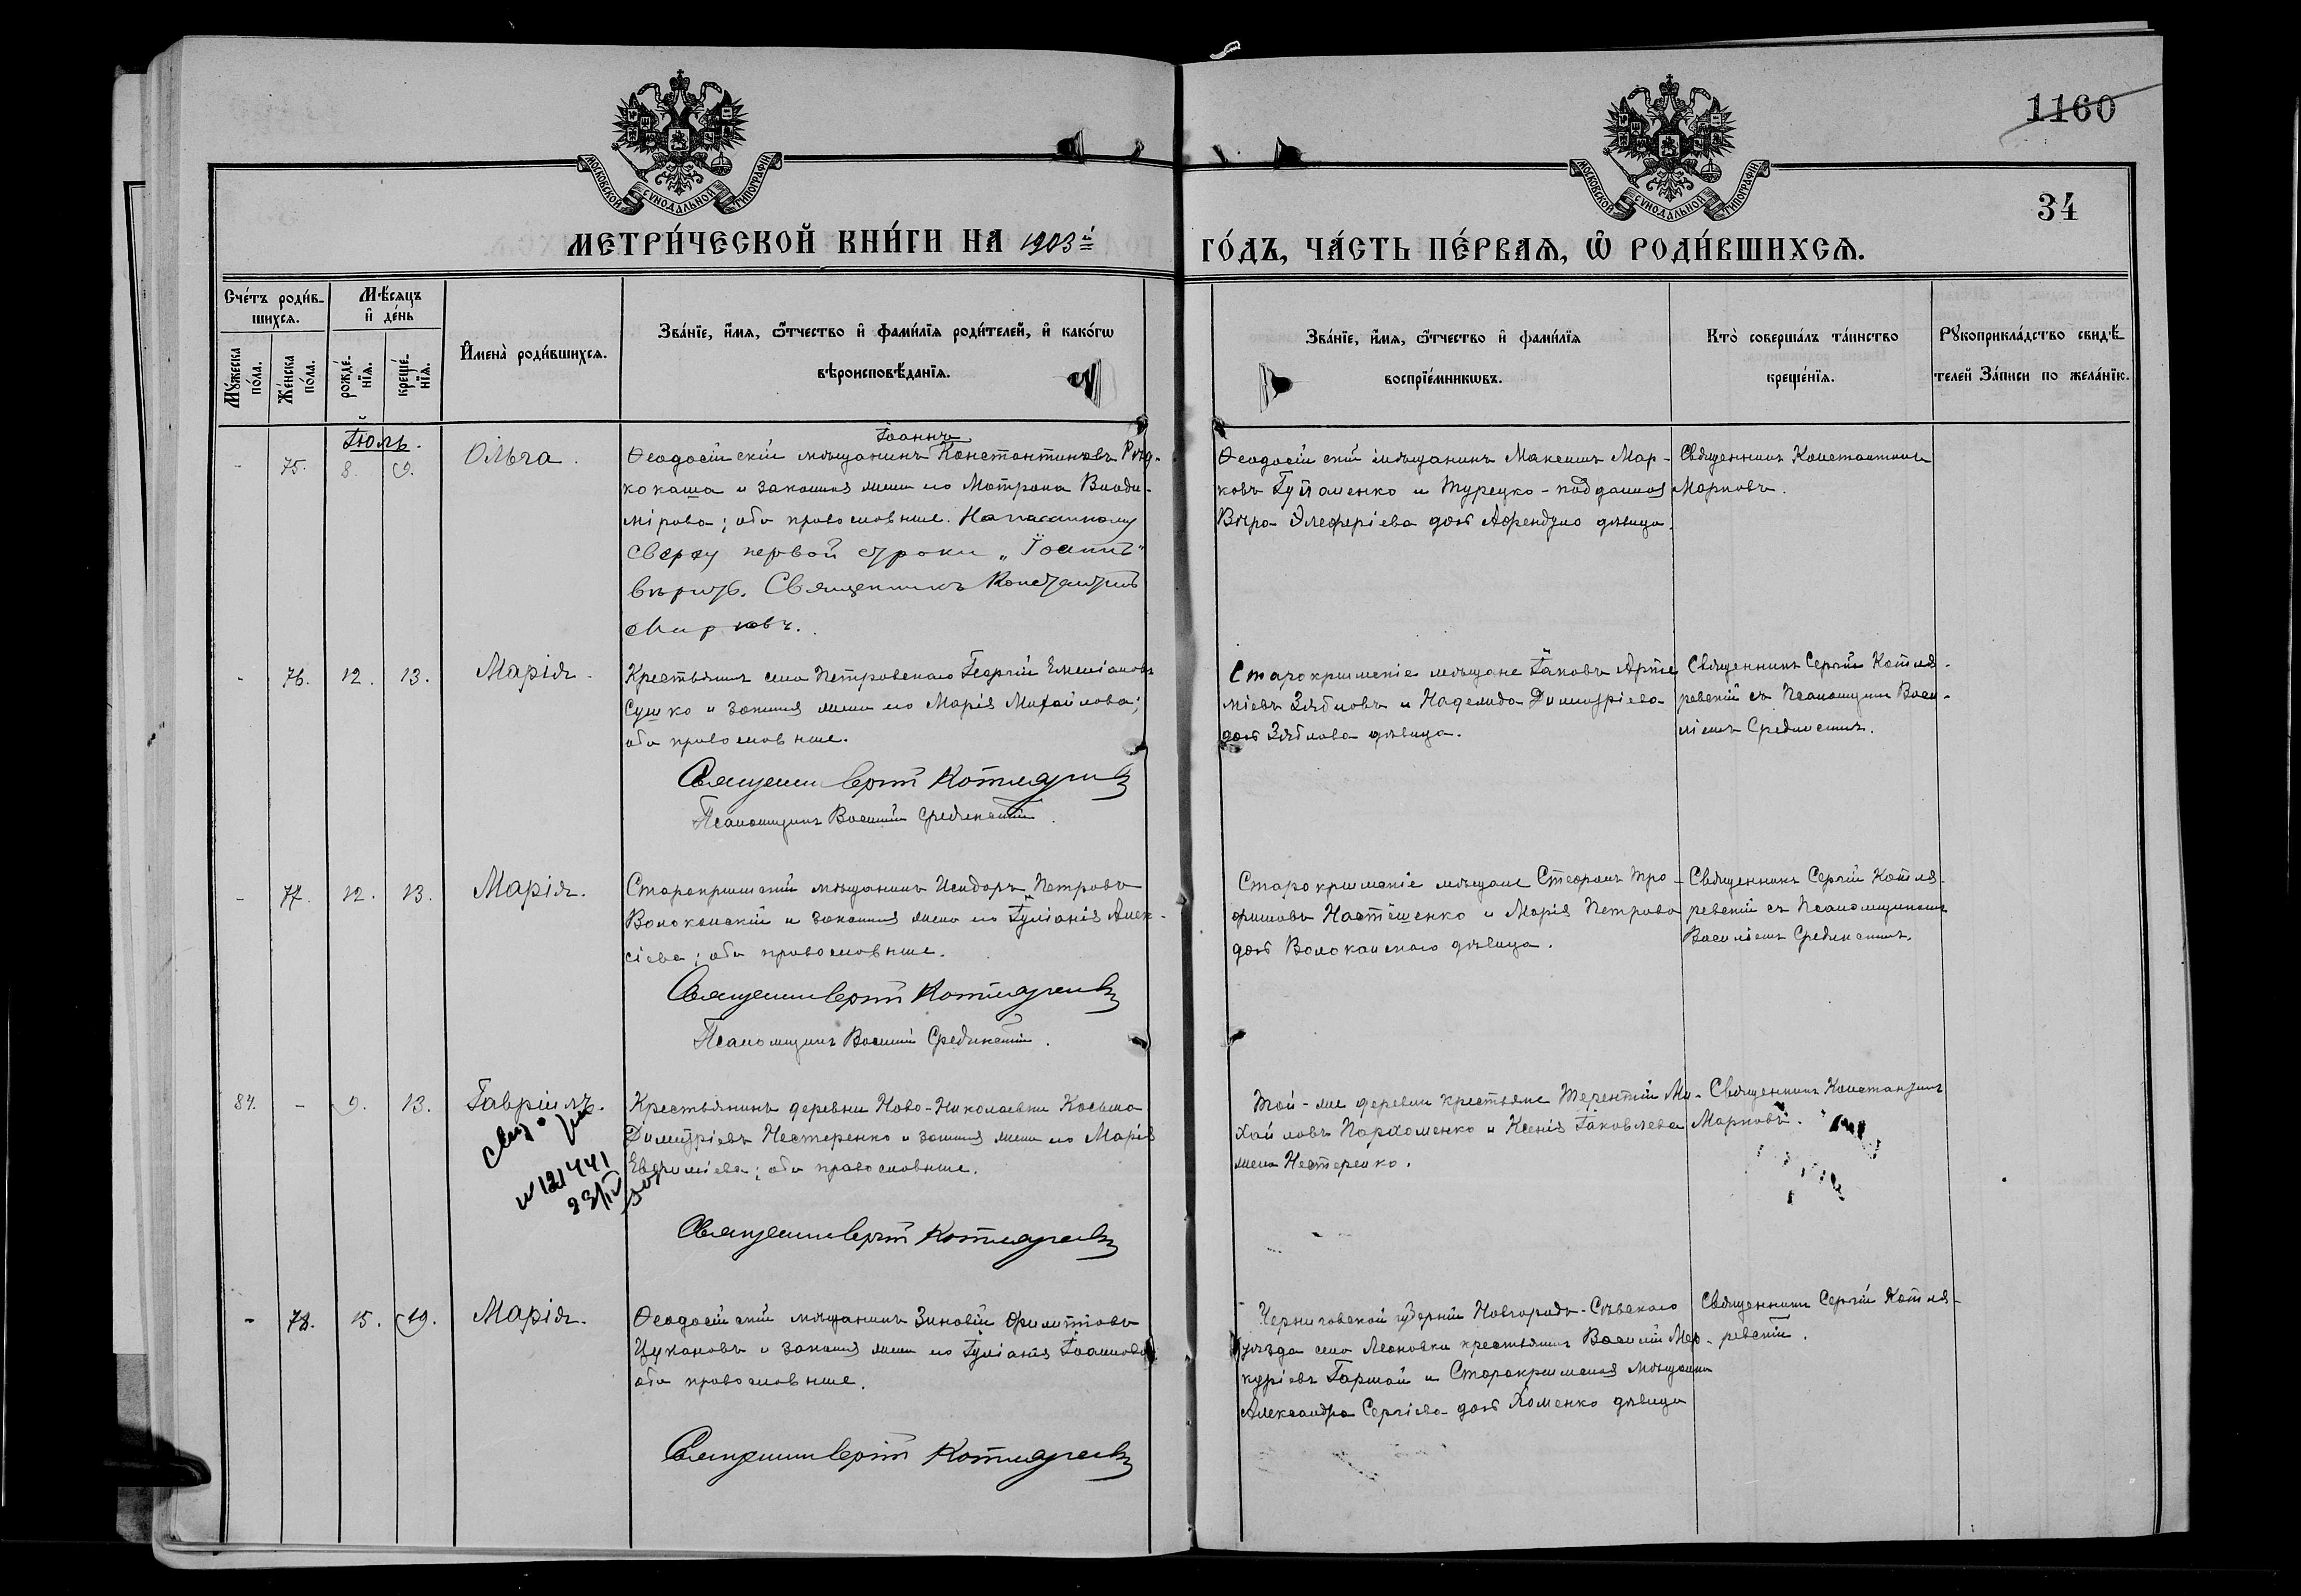 1160
34
МОСКОВСКОЙ СѴНОДАЛЬНОЙ ТИПОГРАФІИ
МОСКОВСКОЙ СѴНОДАЛЬНОЙ ТИПОГРАФІИ
МЕТРИ́ЧЕСКОЙ КНИ́ГИ НА 1903й
ГО́ДЪ, ЧА́СТЬ ПЕ́РВАѦ, Ѡ҆ РОДИ́ВШИХСѦ.
Сче́тъ роди́в-
шихсѧ.
Мꙋ́жеска по́ла.
Же́нска по́ла.
Мѣ́сѧцъ
и҆ де́нь
рожде́-
нїѧ.
креще́-
нїѧ.
И҆мена̀ роди́вшихсѧ.
Зва́нїе, и҆́мѧ, ѻ҆́тчество и҆ фами́лїѧ роди́телей, и҆ како́гѡ
вѣроисповѣ́данїѧ.
Зва́нїе, и҆́мѧ, ѻ҆́тчество и҆ фами́лїѧ
воспрїе́мникѡвъ.
Кто̀ соверша́лъ та́инство
креще́нїѧ.
Рꙋкоприкла́дство свидѣ́-
телей За́писи по жела́нїю.
Іюль.
- 75. 8. 9. Ольга.
Іоаннъ
Ѳеодосійскій мѣщанинъ Константиновъ
кокаша и законная жена его Матрона Влади-
мірова; оба православные. Написанному
сверху первой строки „Іоаннъ"
вѣрить. Священникъ Константинъ
Марковъ.
Ѳеодосійскій мѣщанинъ Максимъ Мар-
ковъ и Турецко-подданная
Вѣра Элеферіева дочь Афендуло дѣвица.
Священникъ Константинъ
Марковъ.
- 76. 12. 13. Марія.
Крестьянинъ села Петровскаго Георгій Емеліановъ
Сушко и законная жена его Марія Михайлова;
оба православные.
Священникъ Сергій Котляревскій
Псаломщикъ Василій Срединскій.
Старокрымскіе мѣщане Іаковъ Арте-
міевъ Зябловъ и Надежда Димитріева
дочь Зяблова дѣвица.
Священникъ Сергій Котля-
ревскій съ Псаломщикомъ Васи-
ліемъ Срединскимъ.
- 77. 12. 13. Марія.
Старокрымскій мѣщанинъ Исидоръ Петровъ
Волоканскій и законная жена его Іуліанія Алек-
сіева; оба православные.
Священникъ Сергій Котляревскій
Псаломщикъ Василій Срединскій.
Старокрымскіе мѣщане Стефанъ Тро-
фимовъ и Марія Петрова
дочь Волоканскаго дѣвица.
Священникъ Сергій Котля-
ревскій съ Псаломщикомъ
Василіемъ Срединскимъ.
84. - 9. 13. Гавріилъ.
№ 121441
23/IV
Крестьянинъ деревни Ново-Николаевки Косьма
Димитріевъ Нестеренко и законная жена его Марія
Евѳиміева; оба православные.
Священникъ Сергій Котляревскій
Той-же деревни крестьяне Терентій Ми-
хайловъ Пархоменко и Ксенія Іаковлева
жена Нестеренко.
Священникъ Константинъ
Марковъ.
- 78. 15. 19. Марія.
Ѳеодосійскій мѣщанинъ Зиновій Филипповъ
Цукановъ и законная жена его Іуліанія Іоаннова
оба православные.
Священникъ Сергій Котляревскій
Черниговской губерніи Новгородъ-Сѣвскаго
уѣзда села Леоновки крестьянинъ Василій Мер-
куріевъ Гармай и Старокрымская мѣщанка
Александра Сергіева дочь Хоменко дѣвица
Священникъ Сергій Котля-
ревскій.